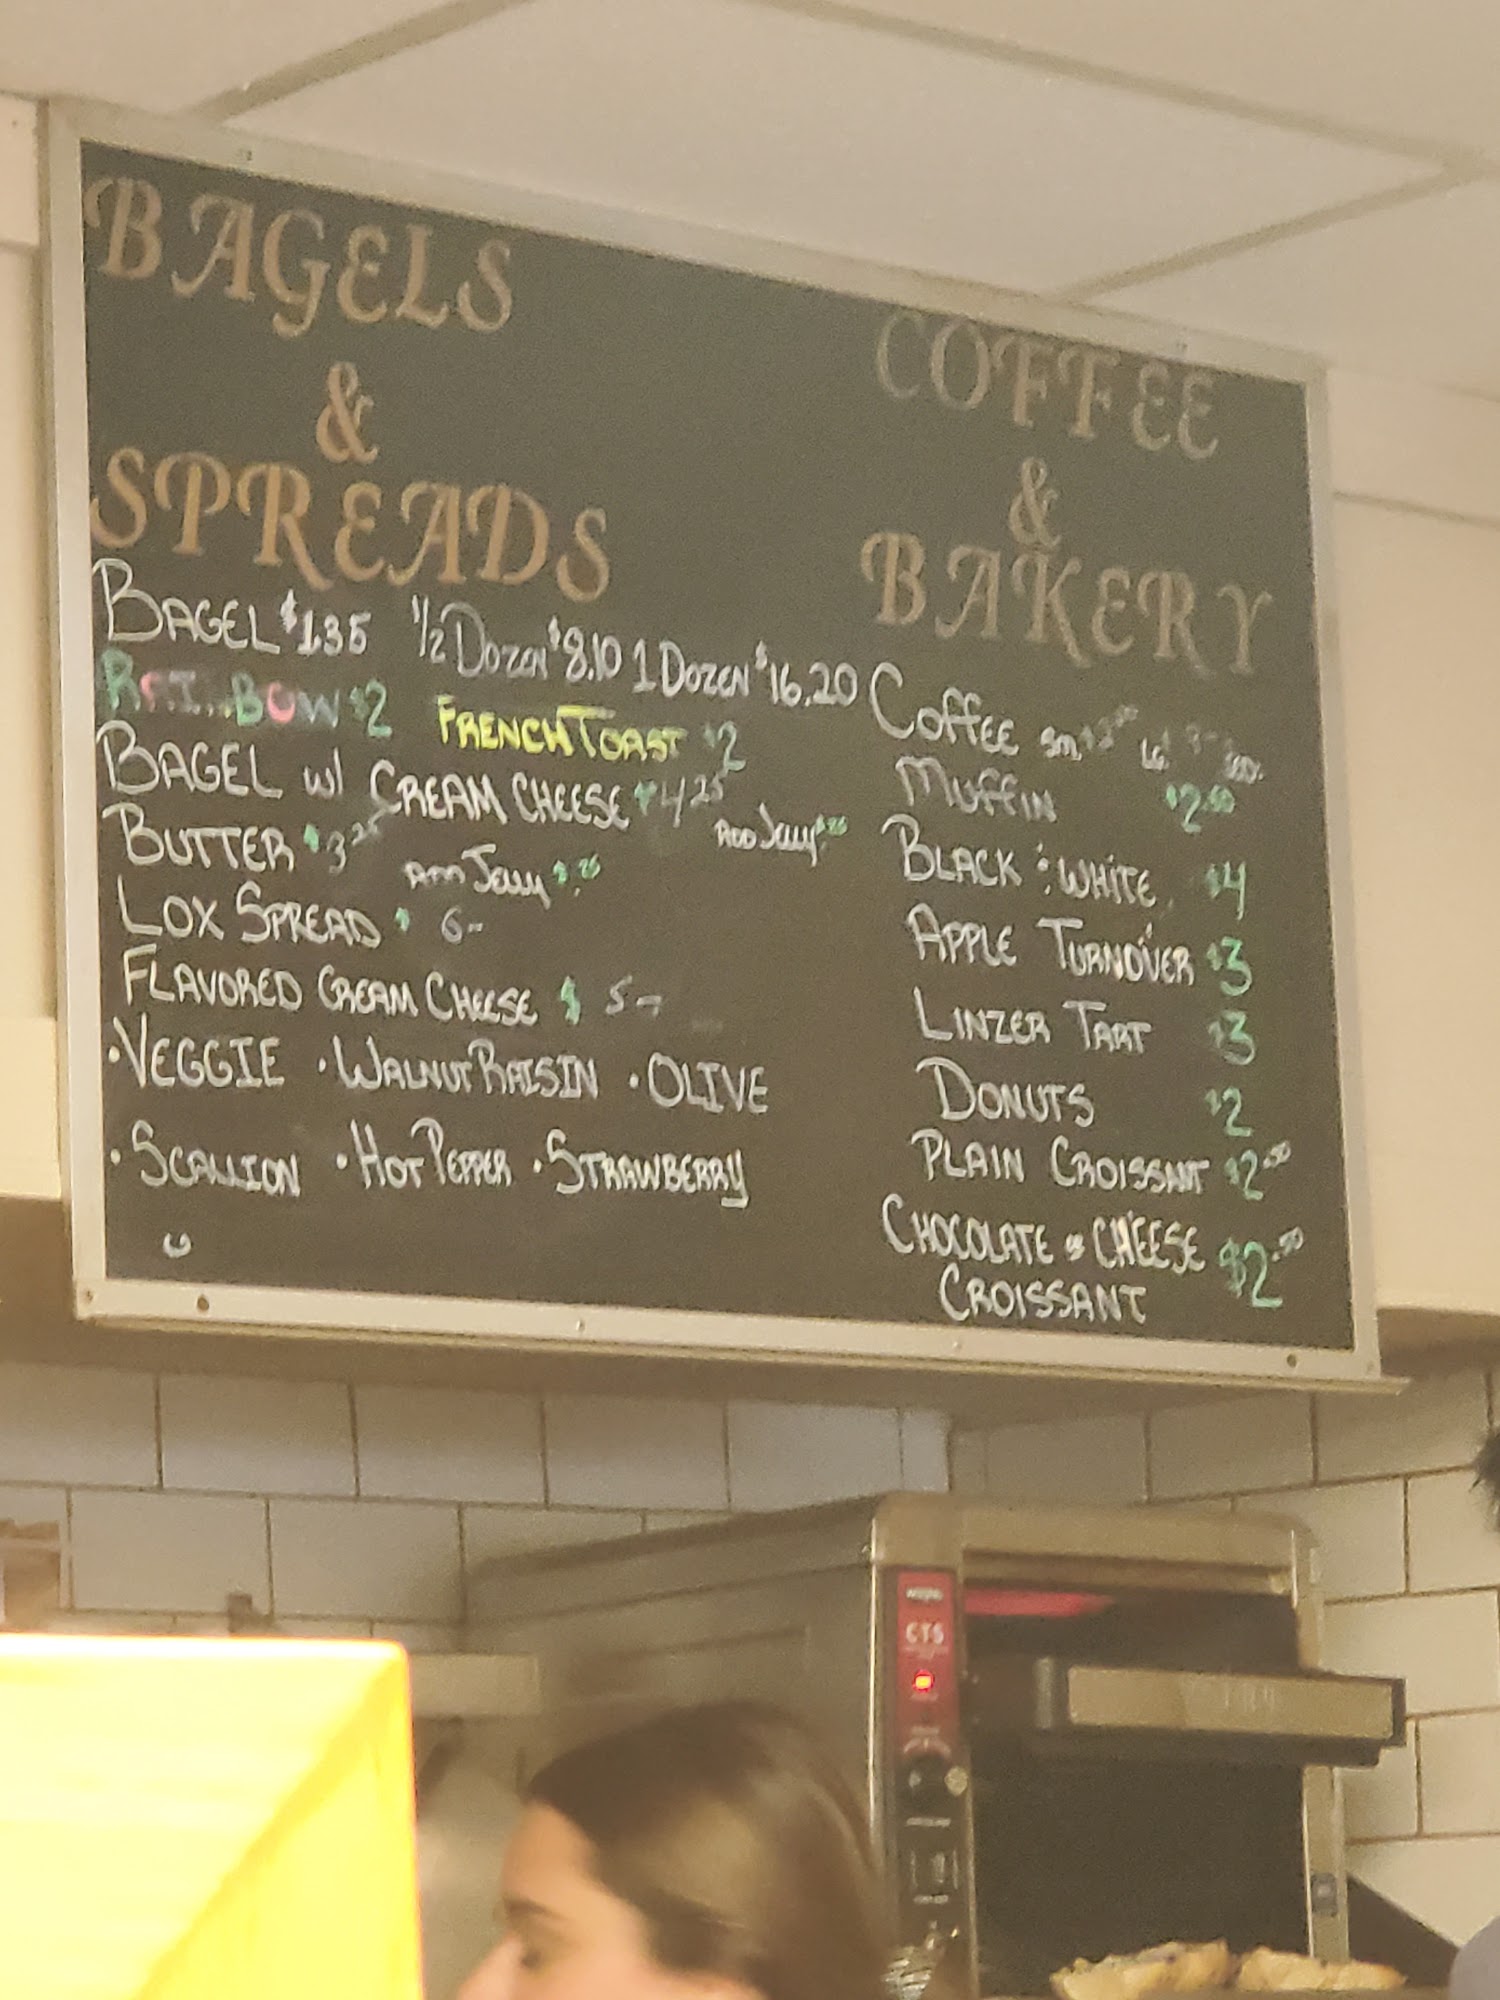 BAGELS
&
SPREADS
BAGEL $1.35 1/2 DOZEN $8.10 1 DOZEN $16.20
RAINBOW $2 FRENCH TOAST $2
BAGEL w/ CREAM CHEESE $4.25
ADD JELLY $.25
BUTTER $3.25 ADD JELLY $.25
LOX SPREAD $ 6-
FLAVORED CREAM CHEESE $ 5-
•VEGGIE •WALNUT RAISIN •OLIVE
•SCALLION •HOT PEPPER •STRAWBERRY
COFFEE
&
BAKERY
COFFEE SM. LG.
MUFFIN $2.50
BLACK & WHITE $4
APPLE TURNOVER $3
LINZER TART $3
DONUTS $2
PLAIN CROISSANT $2.50
CHOCOLATE or CHEESE $2.50
CROISSANT
CTS